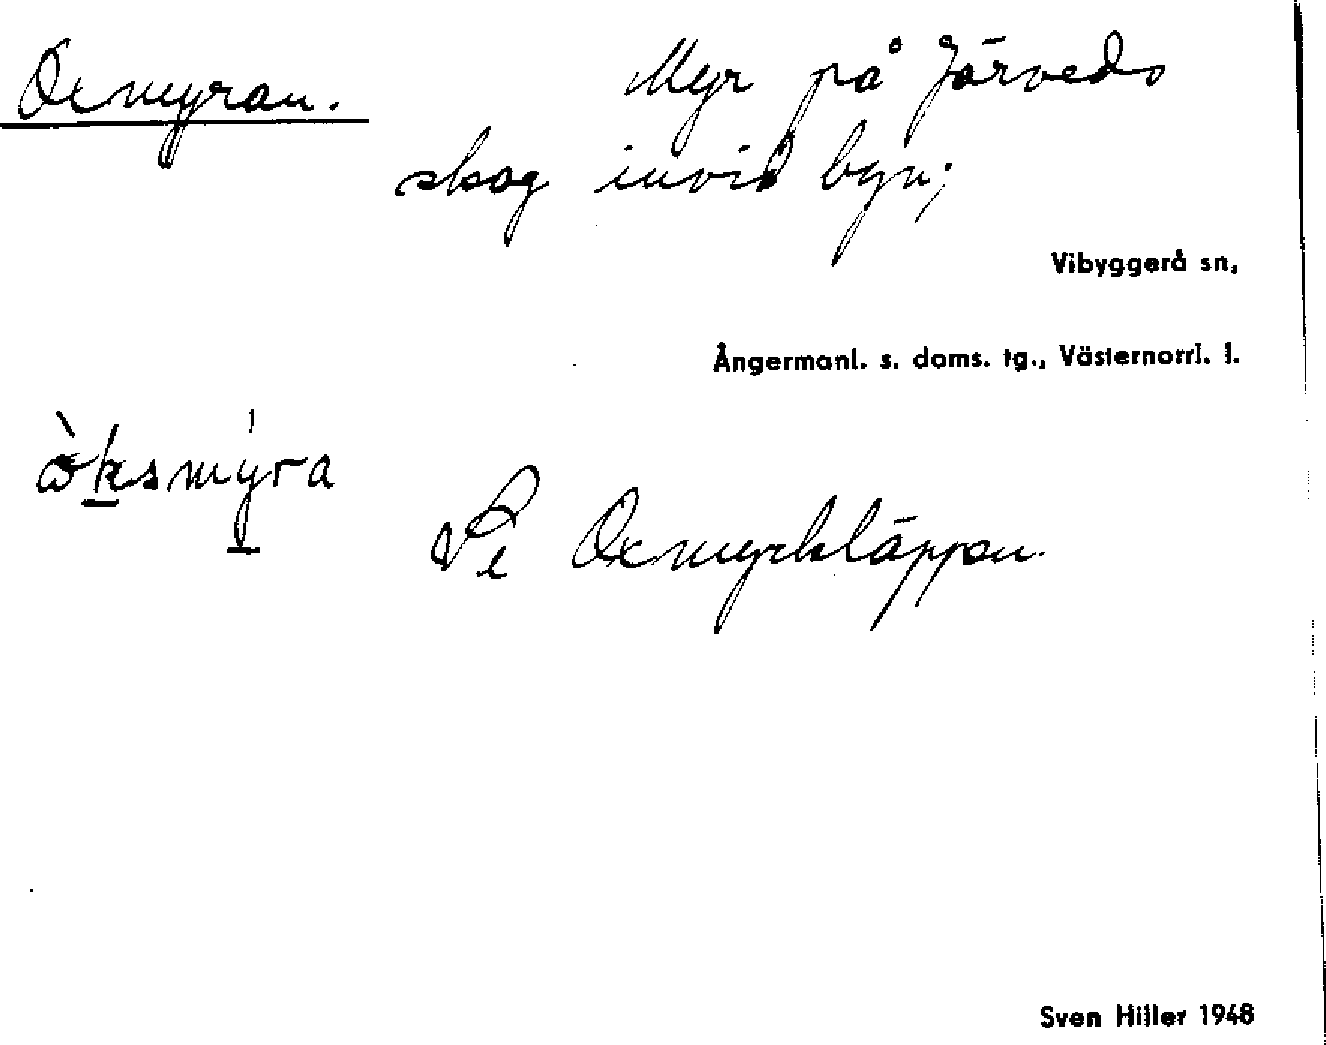 Oxmyran. Myr på Järveds
skog invid byn;
Vibyggerå sn,
Ångermanl. s. doms. tg., Västernorrl. l.
ò̀ksmýra
Se Oxmyrkläppen.
Sven Hiller 1948